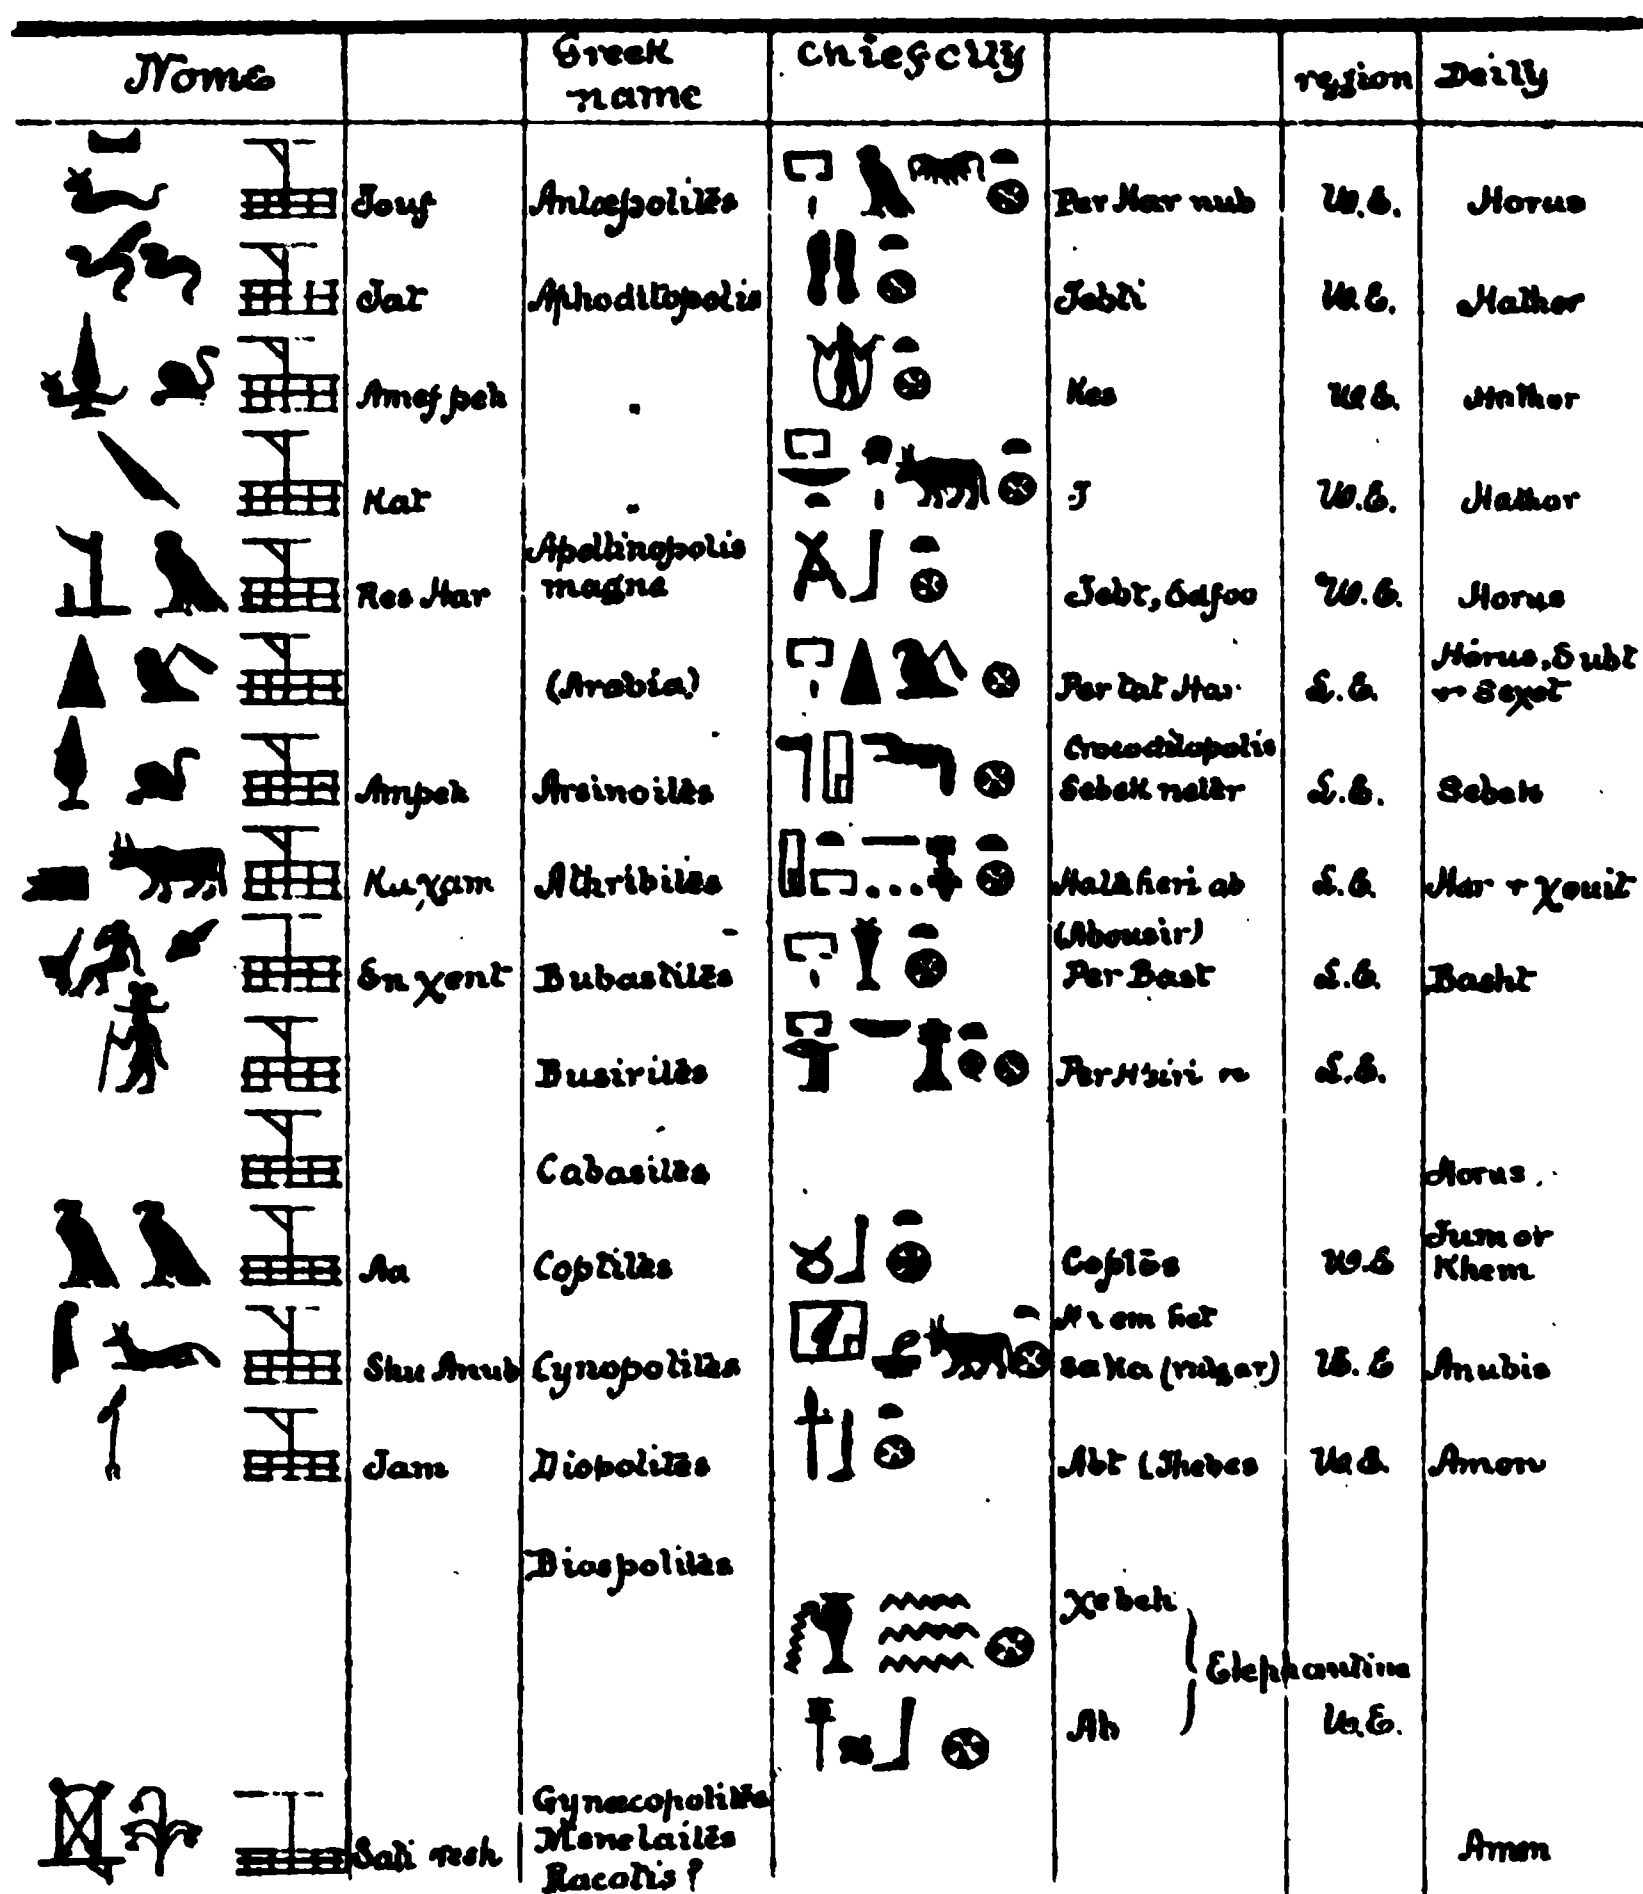 Nome Greek name Chief city region Deity
Jouf Antæpolitēs Per Har nub U.E. Horus
Jat Aphoditopolis Jebti U.E. Hathor
Amef peh Kes U.E. Hathor
Hat J U.E. Hathor
Res Har Apollinopolis magna Jebt, Edfoo U.E. Horus
(Arabia) Per tat Har L.E. Horus, Subt
Ampeh Arsinoitēs Crocodilopolis Sebek neter L.E. Sebek
Ku χam Athribitēs Hat heri ab L.E. Har + χouit
Sn χent Bubastitēs (Abousir) Per Bast L.E. Basht
Busiritēs L.E.
Cabasitēs Horus
Aa Coptitēs Coptōs U.E Jum or Khem
Shu Anub Cynopolitēs Hi em het saka U.E Anubis
Jam Diopolitēs Abt (Thebes U.E. Amon
Diospolitēs
χebeh
Elephantine
Ab U.E.
Sati resh Gynæcopolitēs
Menelaitēs Amon
Racotis?